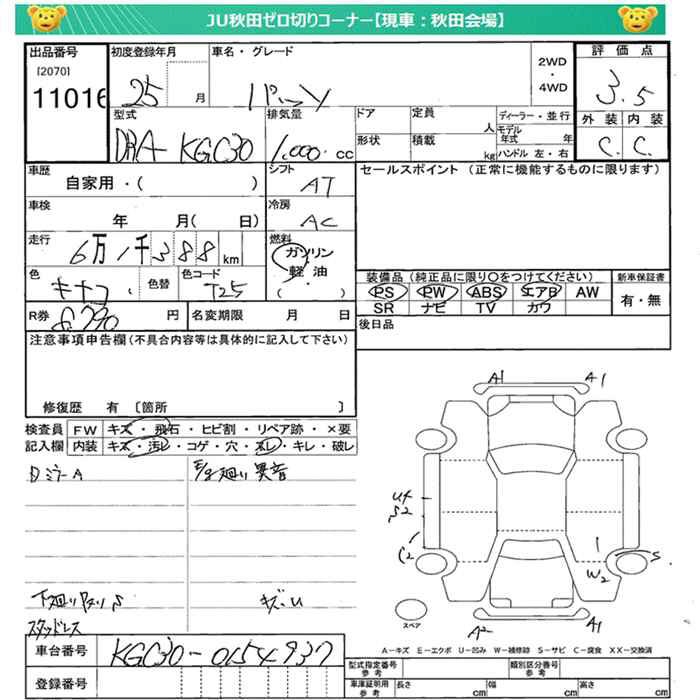 JU秋田ゼロ切りコーナー【現車：秋田会場】
出品番号 初度登録年月 車名・グレード 評価点
[2070]
11016 25 月 パッソ 2WD・4WD 3.5
型式 排気量 ドア 定員 人 ディーラー・並行 外装 内装
DBA-KGC30 1,000 cc 形状 積載 kg モデル年式 年 ハンドル 左・右 C. C.
車歴 シフト セールスポイント（正常に機能するものに限ります）
自家用・( ) AT
車検 冷房
年 月( 日) AC
走行 燃料
6万1千388km ガソリン
軽・油
( )
色 色替 色コード
キナコ T25
装備品（純正品に限り○をつけてください） 新車保証書
PS PW ABS エアB AW 有・無
SR ナビ TV カワ
R券 8,790円 名変期限 月 日 後日品
注意事項申告欄（不具合内容等は具体的に記入して下さい）
修復歴 有 〔箇所 〕
検査員 FW キズ・飛石・ヒビ割・リペア跡・×要
記入欄 内装 キズ・汚レ・コゲ・穴・スレ・キレ・破レ
A1 A1
U4
S2
C2
W2
S
A2 A1
スペア
下廻り
スタッドレス
キズ・U
A－キズ E－エクボ U－凹み W－補修跡 S－サビ C－腐食 XX－交換済
車台番号 KGC30-0154937
型式指定番号 参考 類別区分番号 参考
登録番号
車庫証明用 参考 長さ cm 幅 cm 高さ cm